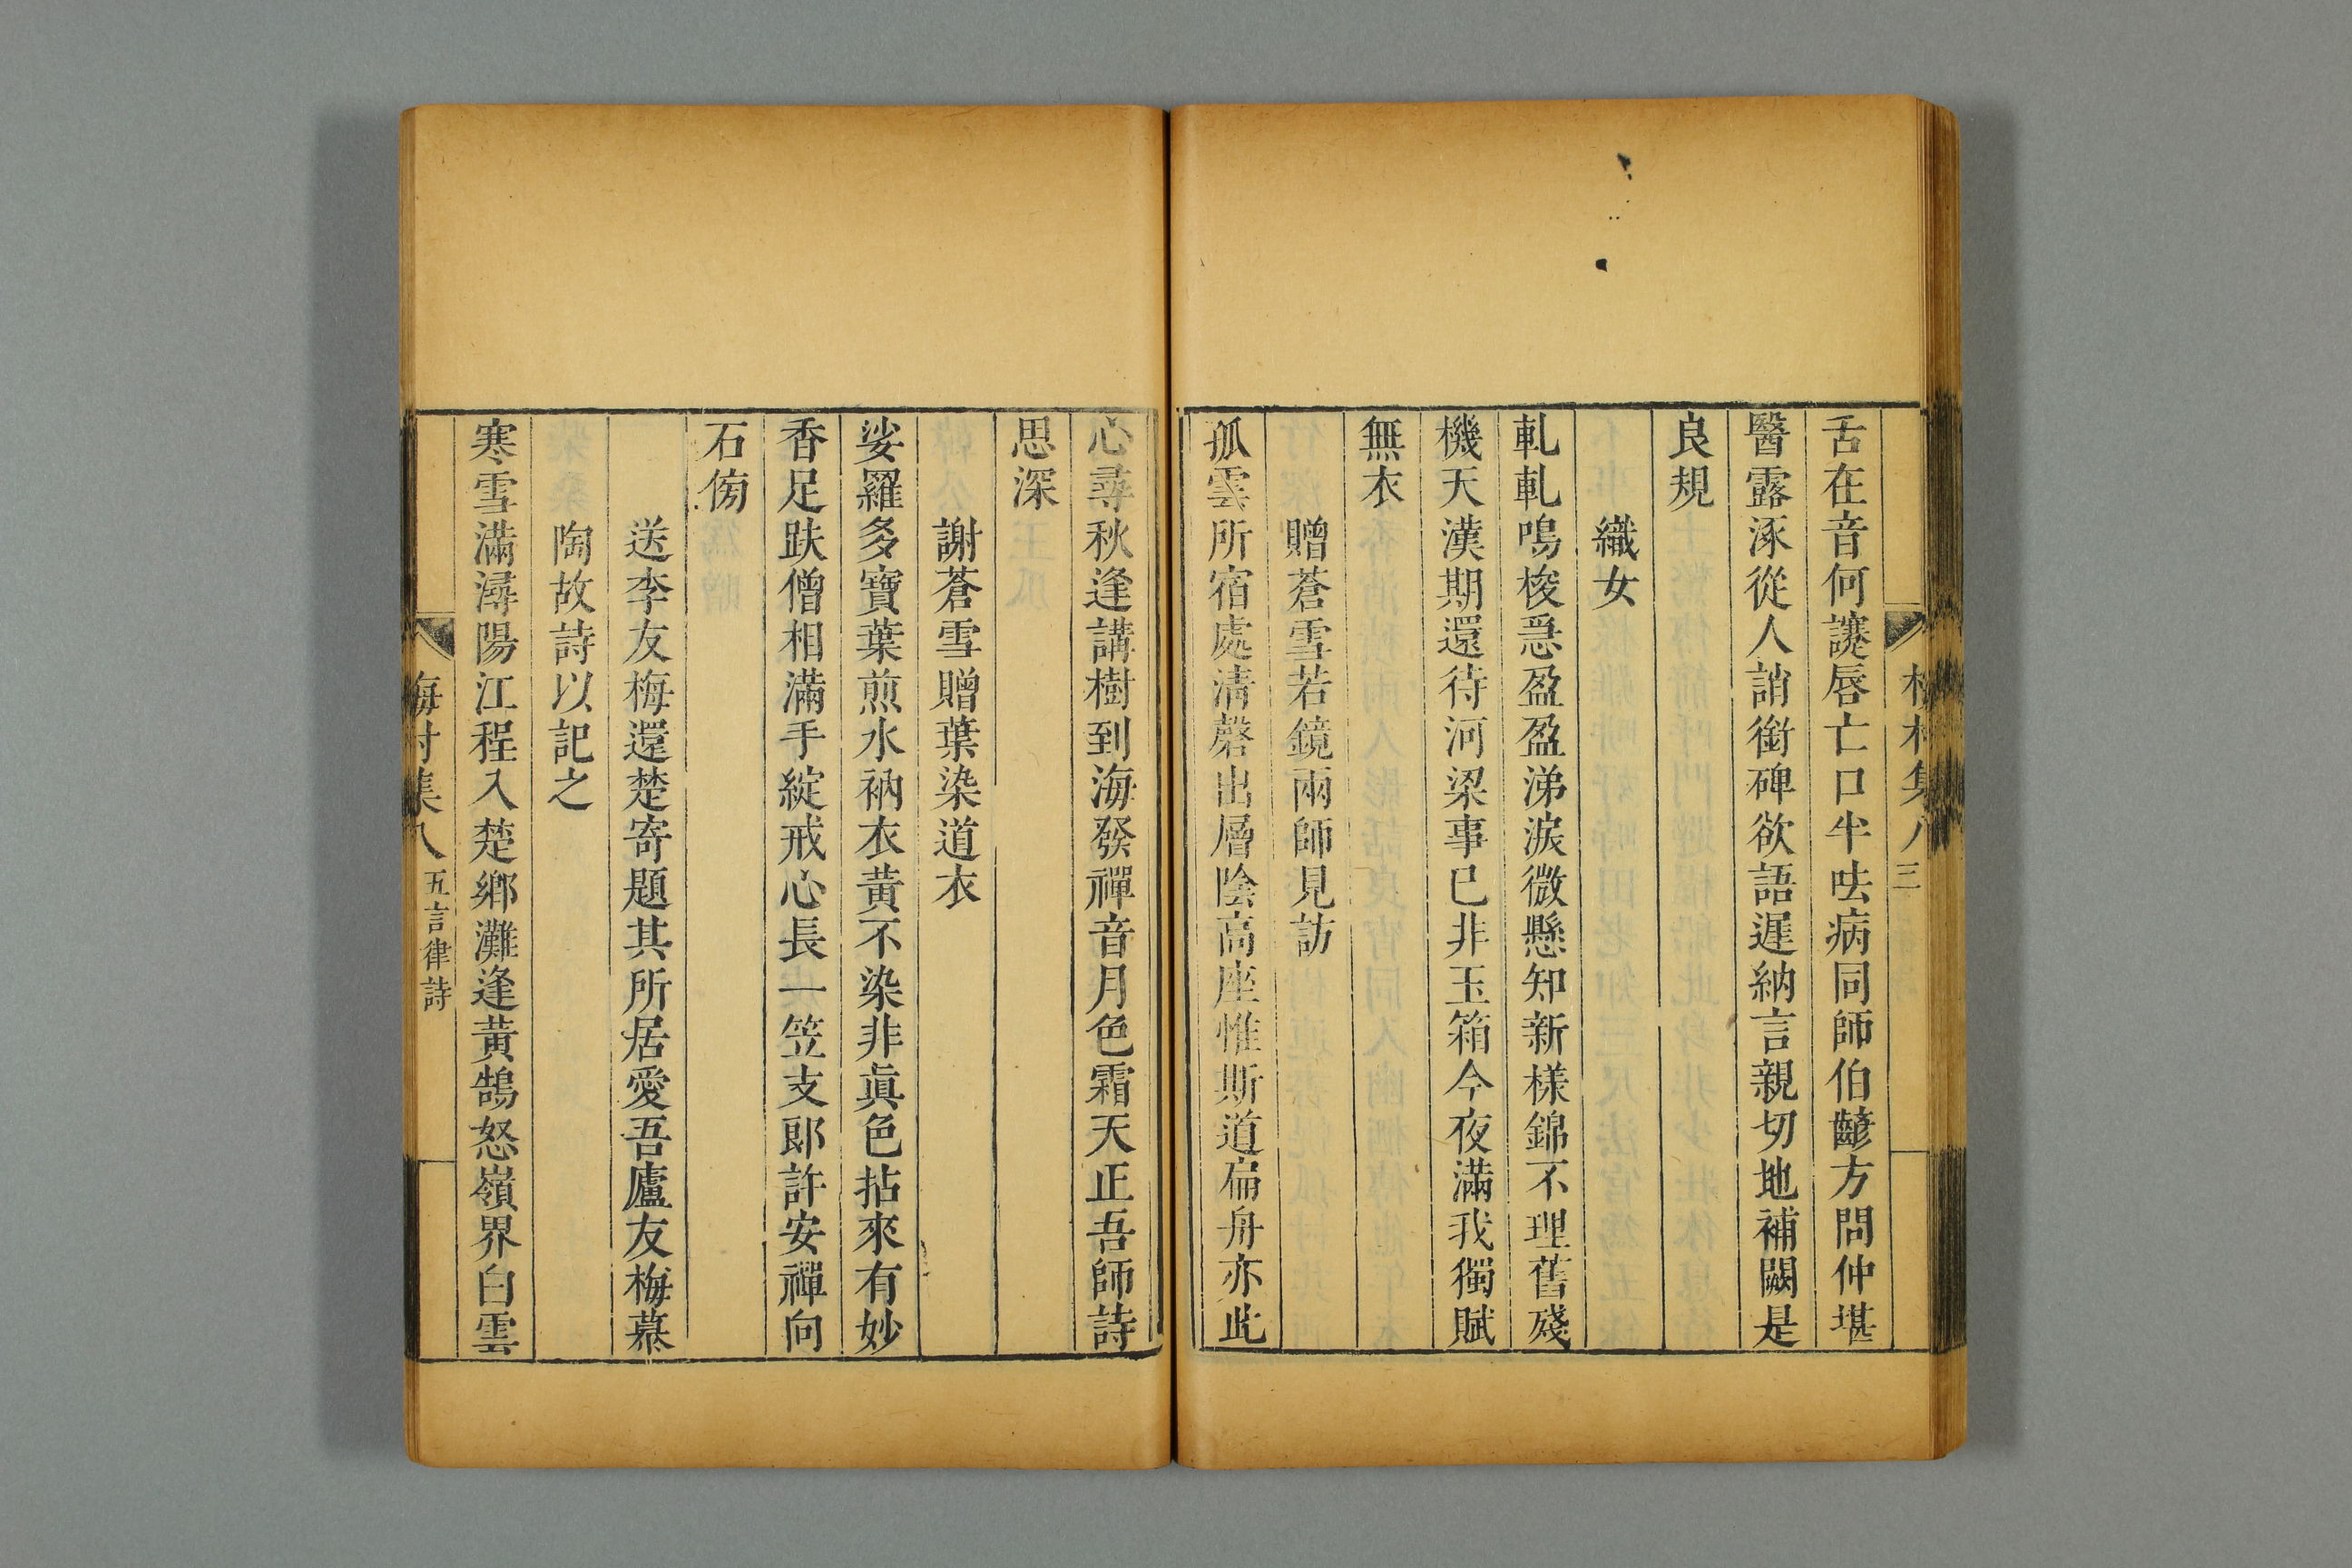 梅村集八 三
舌在音何讓唇亡口半呿病同師伯齴方問仲堪
醫露涿從人誚銜碑欲語遲納言親切地補闕是
良規
織女
軋軋鳴梭急盈盈涕淚微懸知新樣錦不理舊殘
機天漢期還待河梁事已非玉箱今夜滿我獨賦
無衣
贈蒼雪若鏡兩師見訪
孤雲所宿處清磬出層陰高座惟斯道扁舟亦此
心尋秋逢講樹到海發禪音月色霜天正吾師詩
思深
謝蒼雪贈葉染道衣
娑羅多寶葉煎水衲衣黃不染非眞色拈來有妙
香足趺僧相滿手綻戒心長一笠支郞許安禪向
石傍
送李友梅還楚寄題其所居愛吾廬友梅慕
陶故詩以記之
寒雪滿潯陽江程入楚鄉灘逢黃鵠怒嶺界白雲
梅村集八 五言律詩